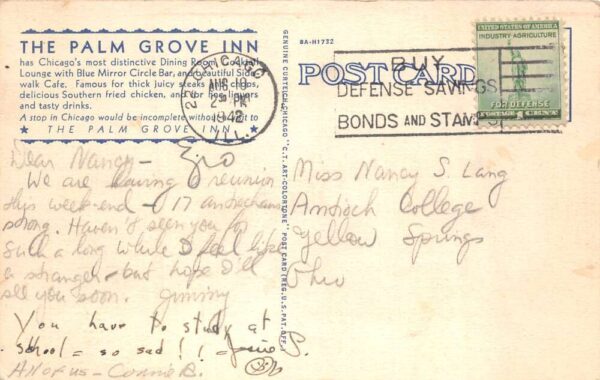 THE PALM GROVE INN
has Chicago's most distinctive Dining Room, Cocktail
Lounge with Blue Mirror Circle Bar, and beautiful Side
walk Cafe. Famous for thick juicy steaks and chops,
delicious Southern fried chicken, and for fine liquors
and tasty drinks.
A stop in Chicago would be incomplete without a visit to
★ THE PALM GROVE INN ★
CHICAGO
AUG 10
2 30 PM
1942
ILL.
8A-H1732
GENUINE CURTEICH-CHICAGO "C.T. ART-COLORTONE" POST CARD (REG. U.S. PAT. OFF.)
POST CARD
BUY
DEFENSE SAVINGS
BONDS AND STAMPS
UNITED STATES OF AMERICA
INDUSTRY AGRICULTURE
FOR DEFENSE
1 CENT 1
Dear Nancy –
We are having a reunion
this week-end – 17
strong. Haven't seen you for
such a long while I feel like
a stranger – but hope I'll
see you soon. Jimmy
You have to study at
school = so sad!! = P.
All of us – Connie B.
Miss Nancy S. Lang
Antioch College
Yellow Springs
Ohio